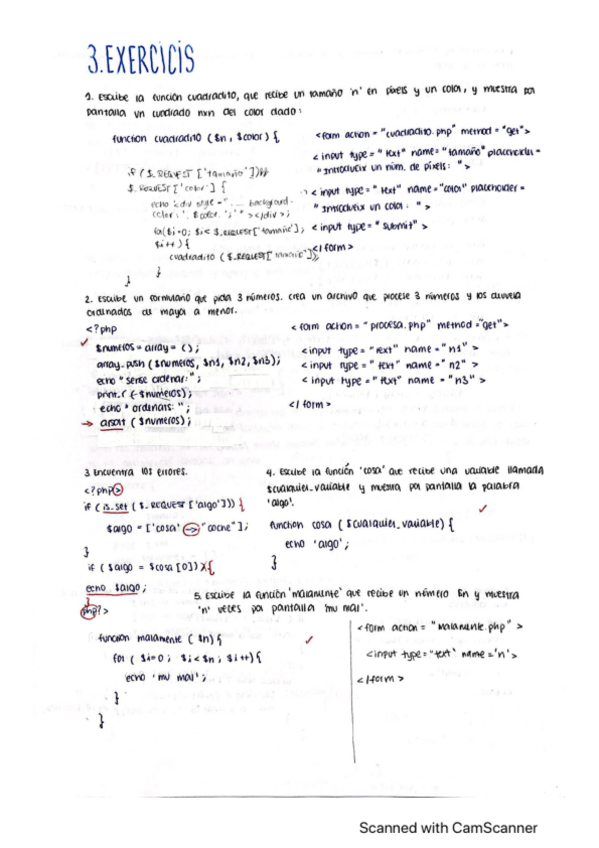 3.EXERCICIS
1. Escribe la función cuadradito, que recibe un tamaño 'n' en píxels y un color, y muestra por
pantalla un cuadrado nxn del color dado:
function cuadradito ($n, $color) {
if ($_REQUEST ['tamaño']))
$_REQUEST ['color'] {
echo "<div style=" ... background-
color: '. $color. ';' " ></div>;
for($i=0; $i< $_REQUEST['tamaño'];
$i++) {
cuadradito ($_REQUEST['tamaño']);
}
}
<form action = "cuadradito.php" method = "get">
<input type = "text" name= "tamaño" placeholder =
"Introducir un núm. de píxels: " >
<input type = "text" name = "color" placeholder =
"Introduzix un color: " >
<input type = "submit" >
</form>
2. Escribe un formulario que pida 3 números. Crea un archivo que procese 3 números y los devuelva
ordenados de mayor a menor.
<?php
$numeros = array = ();
array_push ($numeros, $n1, $n2, $n3);
echo "sense ordenar:";
print_r ($numeros);
echo "ordenats:";
→ arsort ($numeros);
<form action = "procesa.php" method ="get">
<input type = "text" name = "n1" >
<input type = "text" name = "n2" >
<input type = "text" name = "n3" >
</form>
3. Encuentra los errores.
<?php>
if (is_set ($_REQUEST ['algo'])) {
$algo = ['cosa' -> "coche"];
}
if ($algo = $cosa [0])) {
echo $algo;
}
php?>
4. Escribe la función 'cosa' que recibe una variable llamada
$cualquier_variable y muestra por pantalla la palabra
'algo'.
function cosa ($cualquier_variable) {
echo 'algo';
}
5. Escribe la función 'malamente' que recibe un número $n y muestra
'n' veces por pantalla 'mu mal'.
function malamente ($n) {
for ($i=0; $i<$n; $i++) {
echo 'mu mal';
}
}
<form action = "malamente.php" >
<input type="text" name='n'>
</form>
Scanned with CamScanner